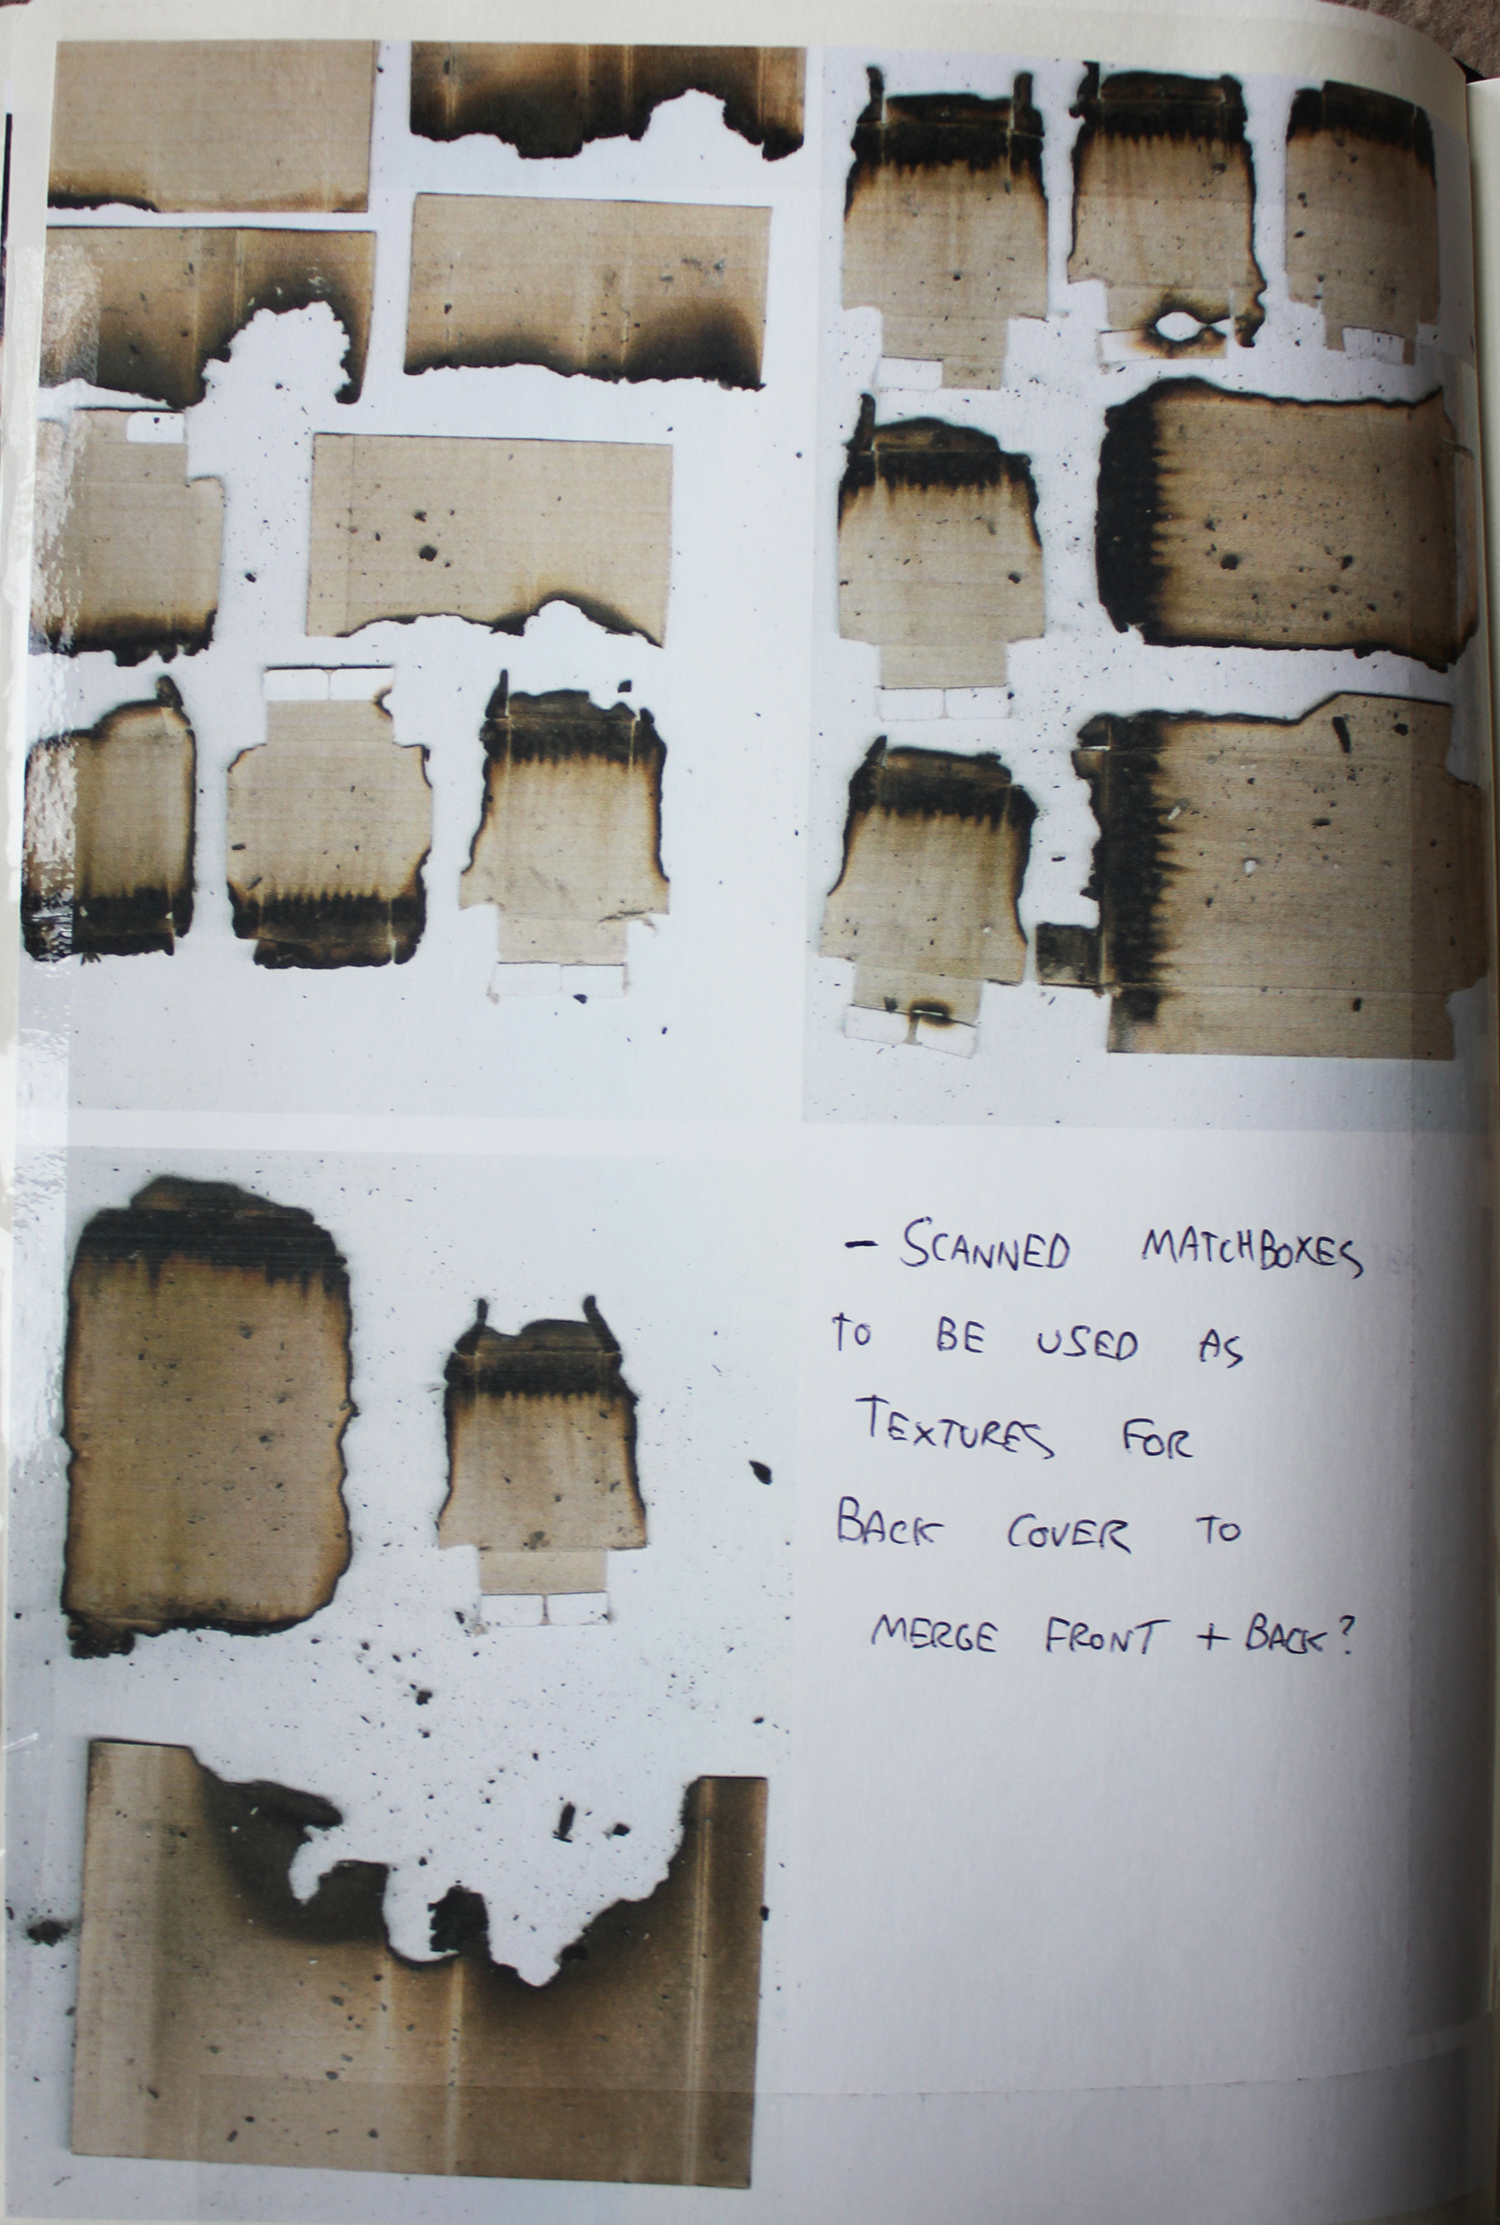 - SCANNED MATCHBOXES
TO BE USED AS
TEXTURES FOR
BACK COVER TO
MERGE FRONT + BACK?